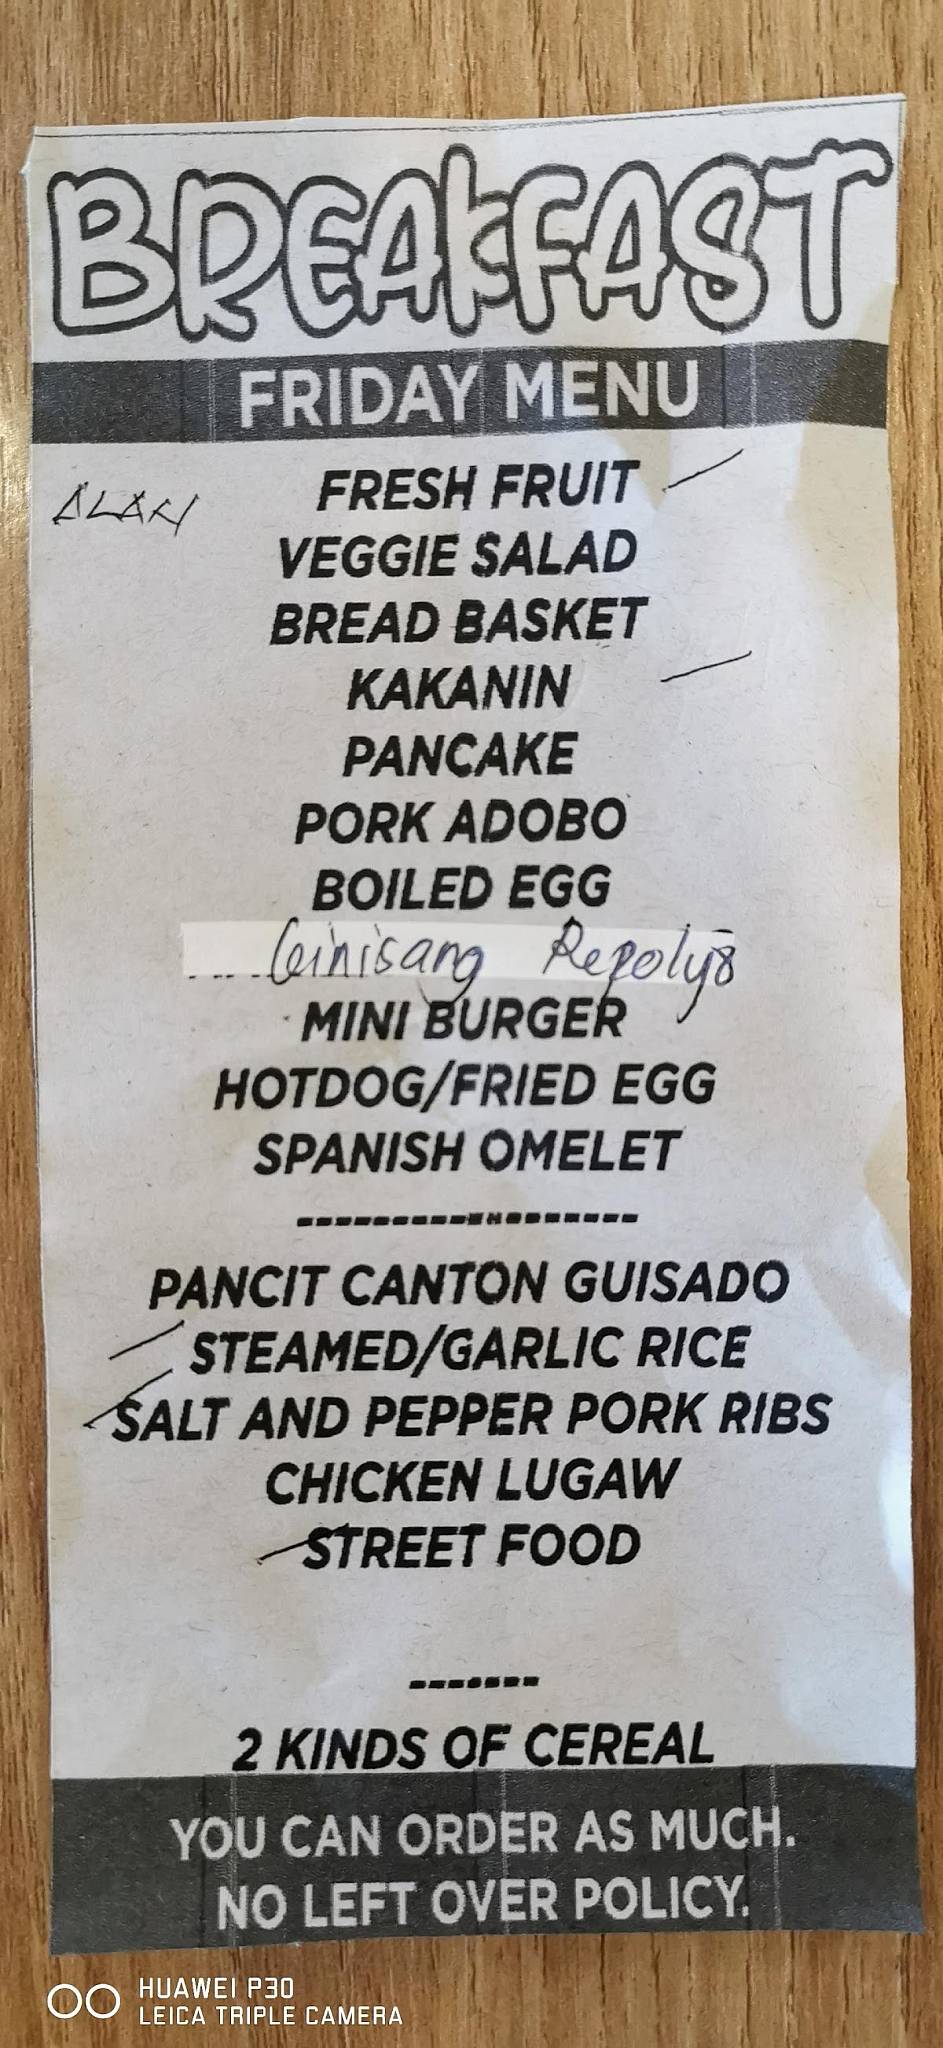 BREAKFAST
FRIDAY MENU
FRESH FRUIT
ALAN
VEGGIE SALAD
BREAD BASKET
KAKANIN
PANCAKE
PORK ADOBO
BOILED EGG
Ginisang Repolyo
MINI BURGER
HOTDOG/FRIED EGG
SPANISH OMELET
PANCIT CANTON GUISADO
STEAMED/GARLIC RICE
SALT AND PEPPER PORK RIBS
CHICKEN LUGAW
STREET FOOD
2 KINDS OF CEREAL
YOU CAN ORDER AS MUCH.
NO LEFT OVER POLICY.
HUAWEI P30
LEICA TRIPLE CAMERA